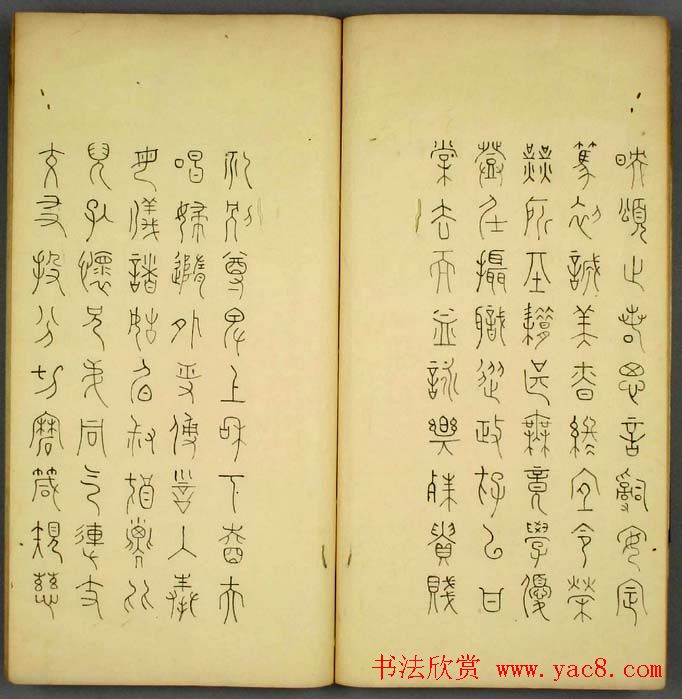 映頌止若思言辭安定
篤初誠美昚終宜令榮
業所基籍甚無竟學優
登仕攝職從政存以甘
棠去而益詠樂殊貴賤
礼別尊卑上和下睦夫
唱婦隨外受傅訓入奉
母儀諸姑伯叔猶子比
兒孔懷兄弟同气連枝
交友投分切磨箴規慈
书法欣赏 www.yac8.com